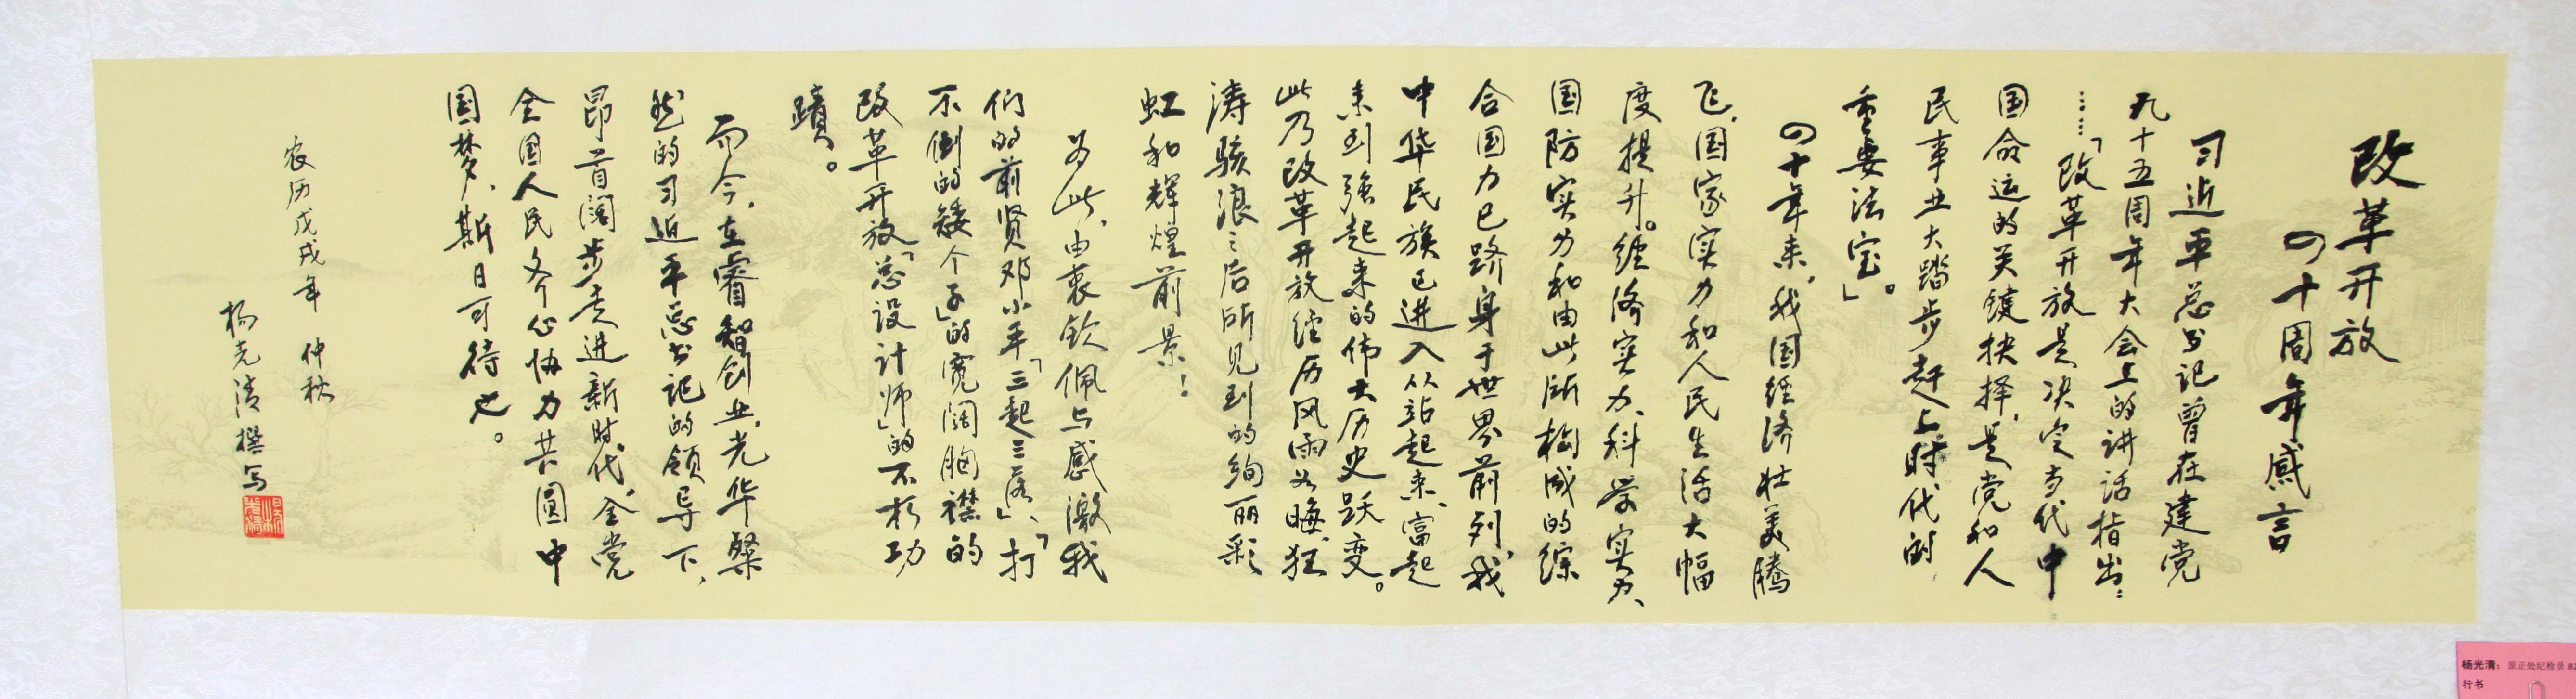 改革开放
四十周年感言
习近平总书记曾在建党
九十五周年大会上的讲话指出：
……「改革开放是决定当代中
国命运的关键抉择，是党和人
民事业大踏步赶上时代的
重要法宝」。
四十年来，我国经济壮美腾
飞，国家实力和人民生活大幅
度提升。经济实力、科学实力、
国防实力和由此所构成的综
合国力已跻身于世界前列，我
中华民族已进入从站起来、富起
来到强起来的伟大历史跃变。
此乃改革开放经历风雨如晦、狂
涛骇浪之后所见到的绚丽彩
虹和辉煌前景！
为此，由衷钦佩与感激我
们的前贤邓小平「三起三落」、「打
不倒的矮个子」的宽阔胸襟的
改革开放「总设计师」的不朽功
蹟。
而今，在睿智创业，光华粲
然的习近平总书记的领导下，
昂首阔步走进新时代，全党
全国人民齐心协力共圆中
国梦，斯日可待也。
农历戊戌年 仲秋
杨光清撰写
杨光清：原正处纪检员 82
行书